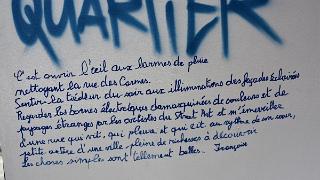 QUARTIER
C'est ouvrir l'œil aux larmes de pluie
nettoyant la rue des Carmes.
Sentir la tiédeur du soir aux illuminations des façades éclairées
Regarder les bornes électriques damasquinées de couleurs et de
paysages étranges par les artistes du Street Art et m'émerveiller
d'une rue qui vit, qui pleure et qui rit au rythme de son cœur,
petite artère d'une ville pleine de richesses à découvrir
les choses simples sont tellement belles. Françoise